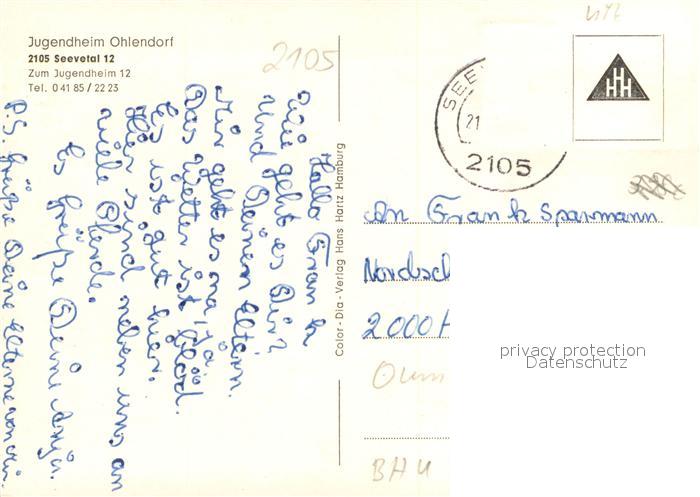 Jugendheim Ohlendorf
2105 Seevetal 12
Zum Jugendheim 12
Tel. 0 41 85 / 22 23
2105
Hallo Frank
Wie geht es Dir?
und Deinen Eltern.
Mir geht es na ja.
Das Wetter ist blöd.
Es ist gut hier.
Hier sind neben uns an
viele Pferde.
Es grüße Deine Anja.
P.S. Grüße Deine Eltern von mir.
Color-Dia-Verlag Hans Hartz Hamburg
SEE
21
2105
HHH
An Frank Sparmann
Nordsch
2000 H
BHU
privacy protection
Datenschutz